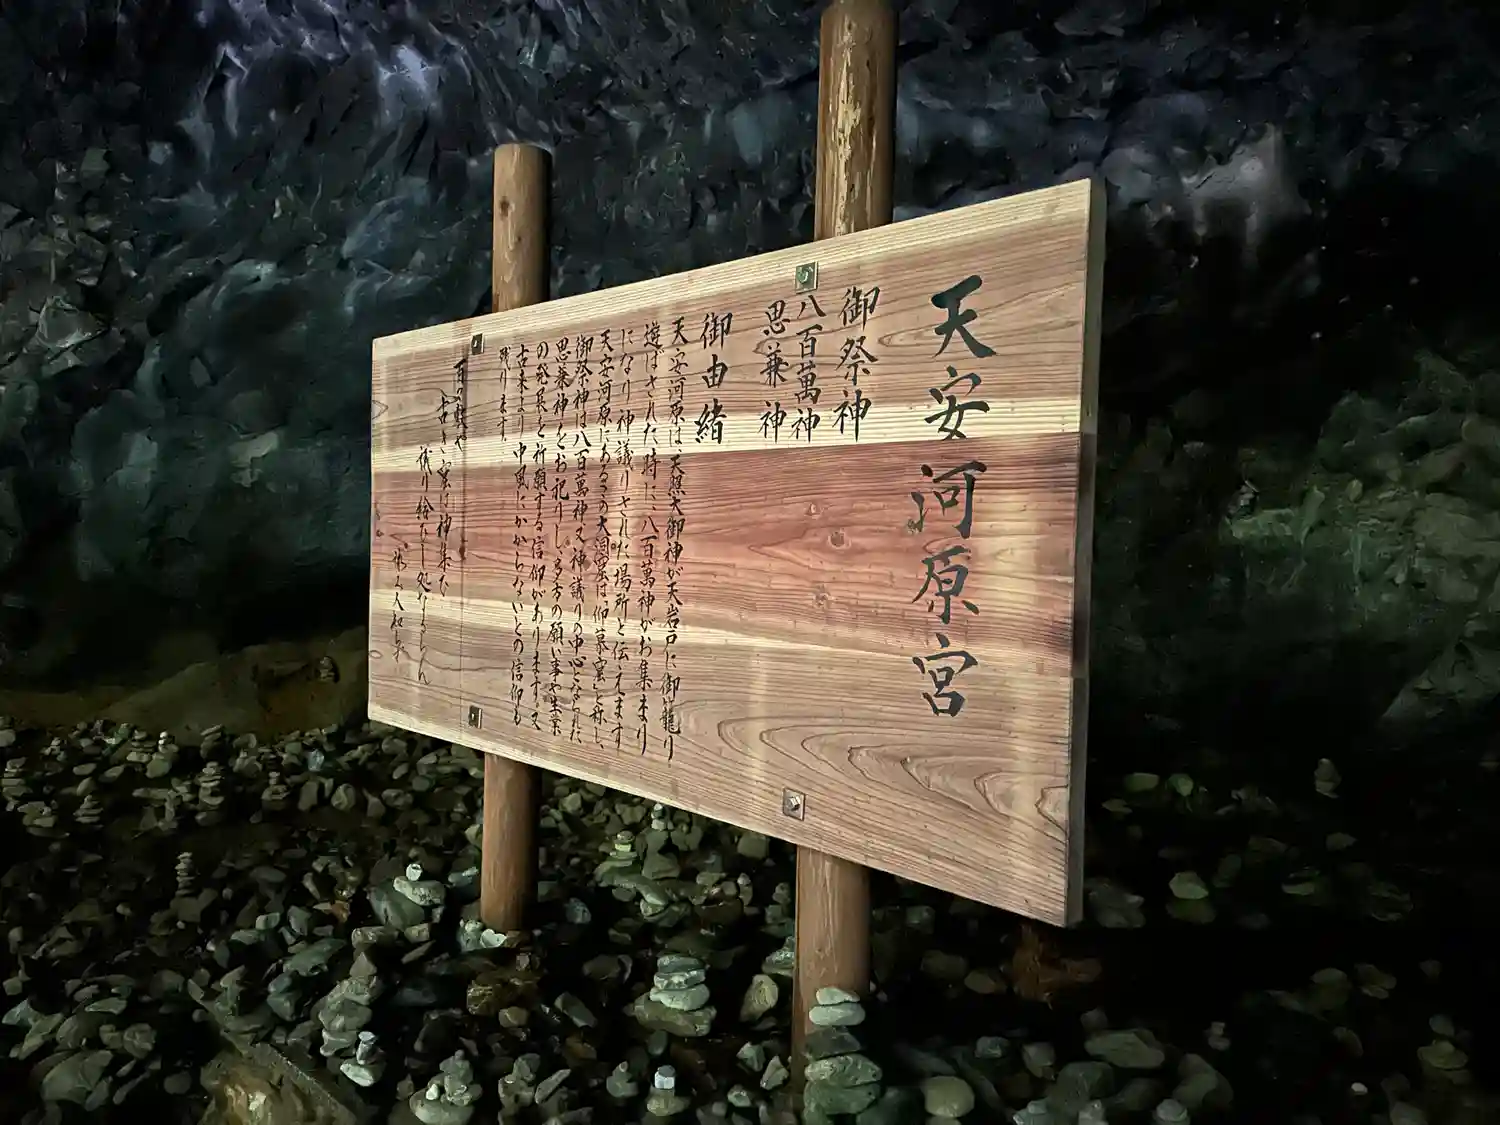 天安河原宮
御祭神
八百萬神
思兼神
御由緒
天安河原は天照大御神が天岩戸に御籠り
遊ばされた時に、八百萬神がお集まり
になり神議りされた場所と伝えます
天安河原にあるこの大洞窟は、仰慕窟と称し、
御祭神は八百萬神又神議りの中心となられた
思兼神をお祀りし、多方の願い事や生業
の発展を祈願する信仰があります。又
古来より中風にかからないとの信仰も
残ります。
古き窟は神集ひ
議り給ひし処なるらん